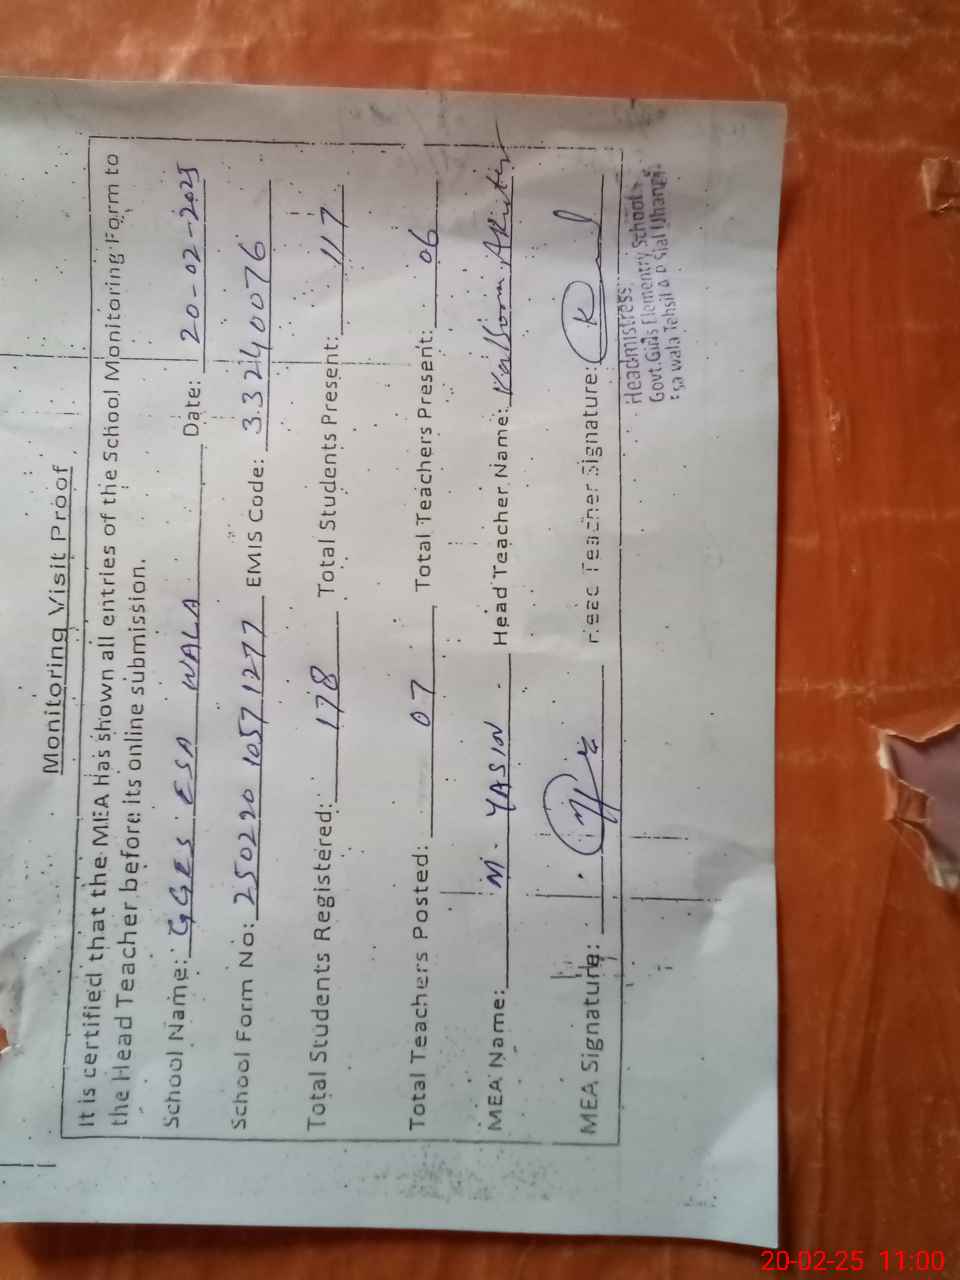 Monitoring Visit Proof
It is certified that the MEA has shown all entries of the School Monitoring Form to
the Head Teacher before its online submission.
School Name: GGES ESA WALA Date: 20-02-2025
School Form No: 250220 1057 1277 EMIS Code: 33240076
Total Students Registered: 178 Total Students Present: 117
Total Teachers Posted: 07 Total Teachers Present: 06
MEA Name: M. YASIN Head Teacher Name: Kalsoom Akhter
MEA Signature: Head Teacher Signature:
Headmistress
Govt. Girls Elementry School
Esa wala Tehsil A P Sial Jhang.
20-02-25 11:00